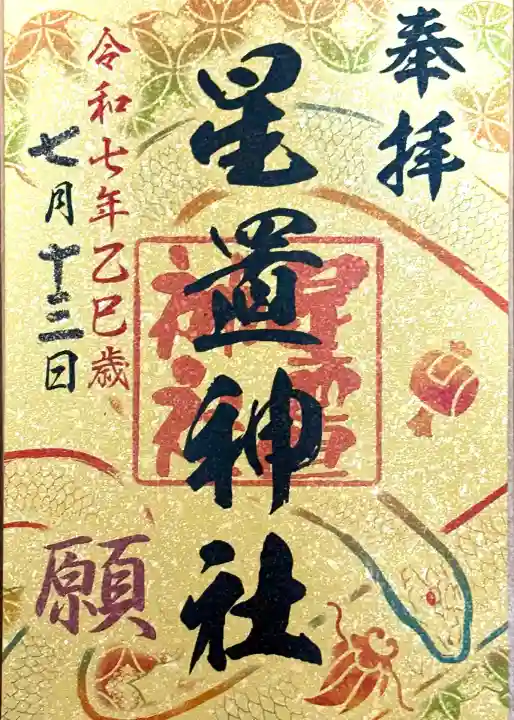 奉拝
星置神社
星置
神社
令和七年乙巳歳
七月十三日
願